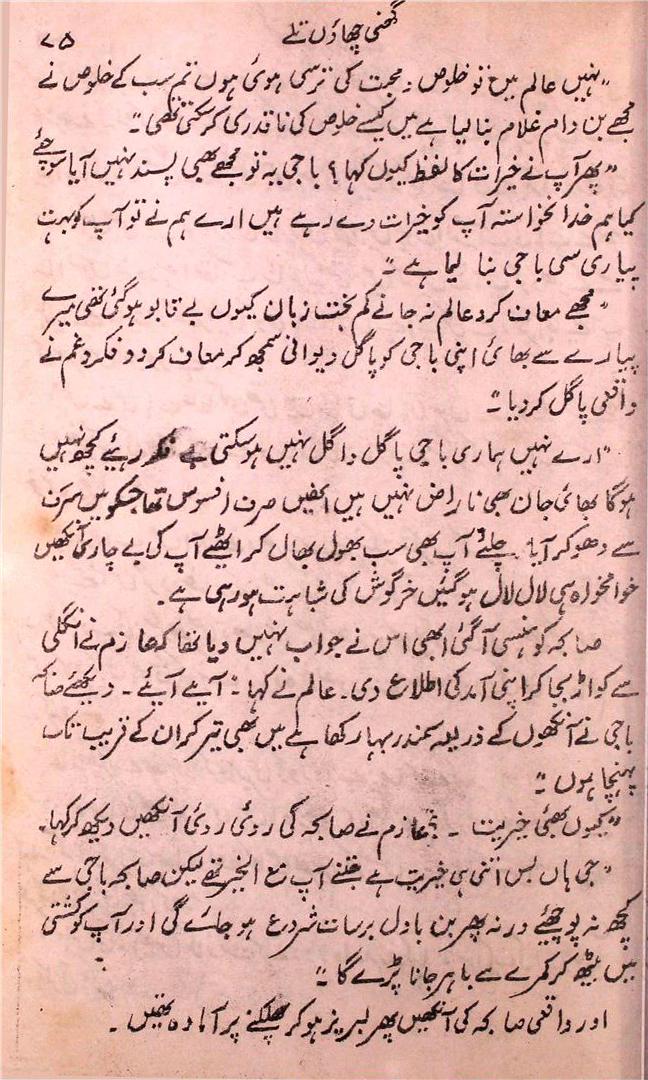 گھنی چھاؤں تلے
۷۵
"نہیں عالم میں تو خلوص و محبت کی ترسی ہوئی ہوں تم سب کے خلوص نے
مجھے بن دام غلام بنا لیا ہے میں کیسے خلوص کی ناقدری کر سکتی تھی"۔
"پھر آپ نے خیرات کا لفظ کیوں کہا؟ باجی یہ تو مجھے بھی پسند نہیں آیا سوچئے
کیا ہم خدانخواستہ آپ کو خیرات دے رہے ہیں ارے ہم نے تو آپ کو بہت
پیاری سی باجی بنا لیا ہے"۔
"مجھے معاف کردو عالم نہ جانے کم بخت زبان کیوں بے قابو ہوگئی تھی میرے
پیارے سے بھائی اپنی باجی کو پاگل دیوانی سمجھ کہ معاف کردو فکر و غم نے
واقعی پاگل کر دیا"۔
"ارے نہیں ہماری باجی پاگل واگل نہیں ہوسکتی بے فکر رہیئے کچھ نہیں
ہوگا بھائی جان بھی ناراض نہیں ہیں انھیں صرف افسوس تھا جسکو میں سرف
سے دھو کر آیا۔ چلئے آپ بھی سب بھول بھال کر اٹھیے آپ کی بے چاری آنکھیں
خوامخواہ ہی لال لال ہوگئیں خرگوش کی شباہت ہورہی ہے۔
صابحہ کو ہنسی آگئی ابھی اس نے جواب نہیں دیا تھا کہ عازم نے انگلی
سے کواڑ بجا کر اپنی آمد کی اطلاع دی۔ عالم نے کہا "آیئے آیئے۔ دیکھئے صابحہ
باجی نے آنکھوں کے ذریعہ سمندر بہا رکھا ہے میں بھی تیر کر ان کے قریب تک
پہنچا ہوں"۔
"کیوں بھئی خیریت۔ عازم نے صابحہ کی روئی روئی آنکھیں دیکھ کر کہا۔
"جی ہاں بس اتنی ہی خیریت ہے جتنے آپ مع الخیر تھے لیکن صابحہ باجی سے
کچھ نہ پوچھیئے ورنہ پھر بن بادل برسات شروع ہو جائے گی اور آپ کو کشتی
میں بیٹھ کر کمرے سے باہر جانا پڑے گا"۔
اور واقعی صابحہ کی آنکھیں پھر لبریز ہو کر چھلکنے پر آمادہ تھیں۔